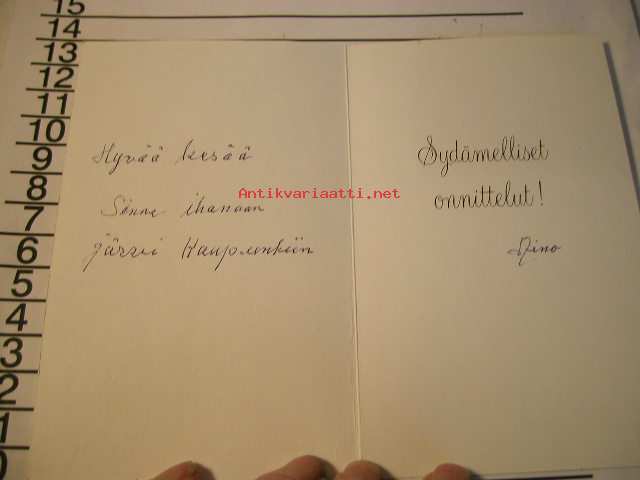 15
14
13
12
11
10
9
8
7
6
5
4
3
2
1
0
Hyvää kesää
Sinne ihanaan
järvi Kaupunkiin
Sydämelliset
onnittelut!
Aino
Antikvariaatti.net